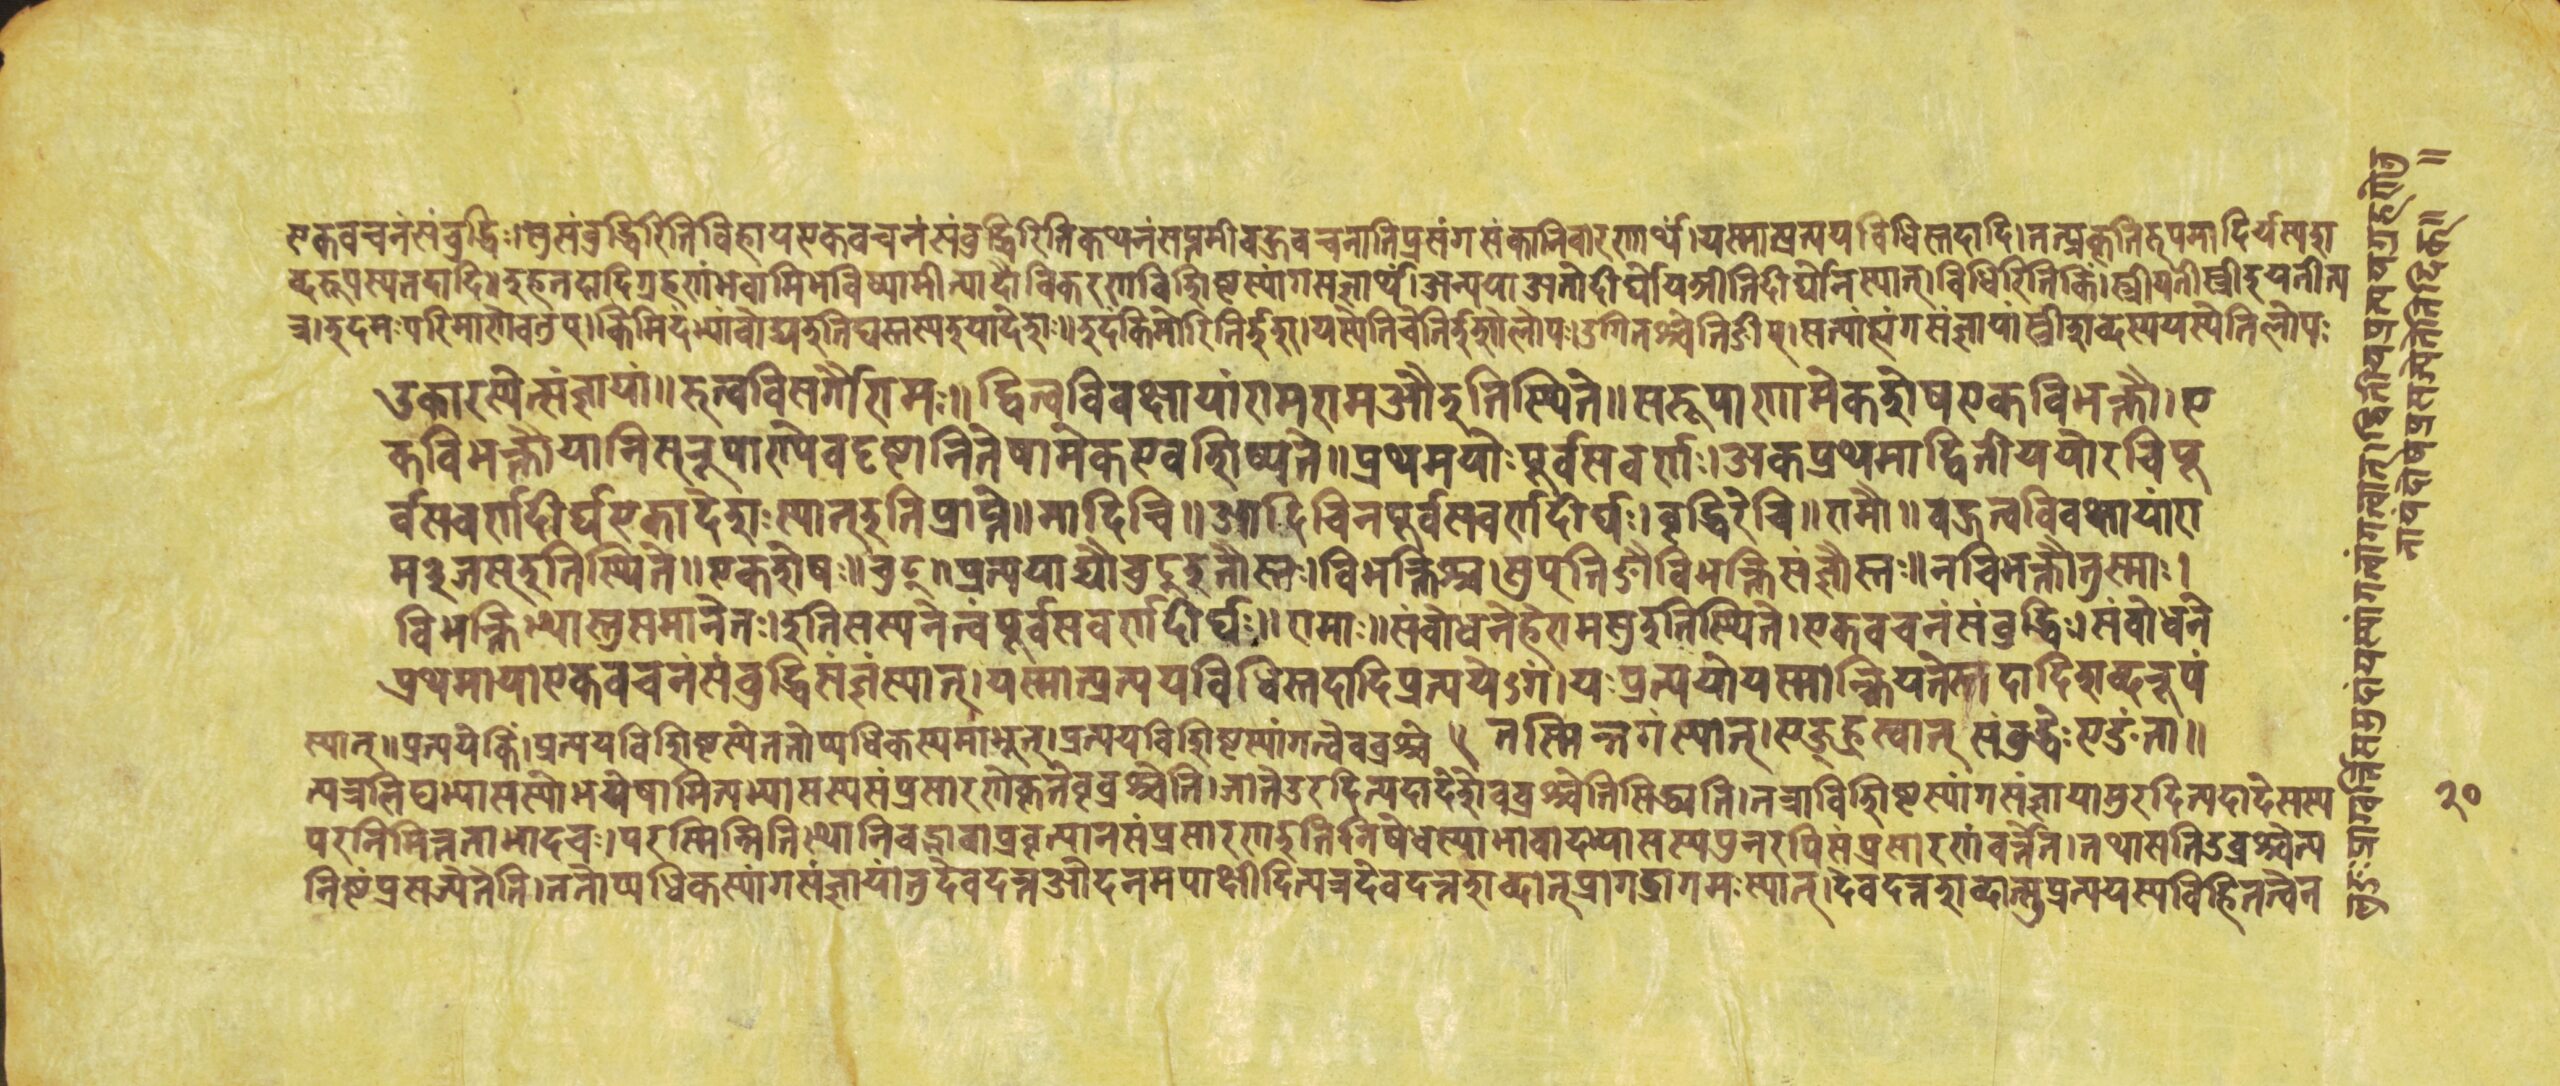 एकवचनंसंबुद्धिः।सुसंबुद्धिरितिविहायएकवचनंसंबुद्धिरितिकथनंसप्तमीबहुवचनातिप्रसंगसंकानिवारणार्थं।यस्मात्प्रत्ययविधिस्तदादि।तत्प्रकृतिरूपमादिर्यस्यश
ब्दरूपस्यतदादि॥इहतदादिग्रहणंभवामिभविष्यामीत्यादौविकरणविशिष्टस्यांगसंज्ञार्थं।अन्यथाअतोदीर्घोयञीतिदीर्घोनस्यात्।विधिरितिकिं।स्त्रीयतीस्त्रीइयतीत्य
त्र।इदमःपरिमाणेवतुप्।किमिदंभ्यांवोघइतिघस्तस्यइयादेशः॥इदंकिमोरितिईश्।यस्येतिचेतिईशोलोपः।उगितश्चेतिङीप्।सत्यांह्यंगसंज्ञायांस्त्रीशब्दस्ययस्येतिलोपः
उकारस्येत्संज्ञायां॥रुत्वविसर्गौरामः॥द्वित्वविवक्षायांरामरामऔइतिस्थिते॥सरूपाणामेकशेषएकविभक्तौ।ए
कविभक्तौयानिसरूपाण्येवदृष्टानितेषामेकएवशिष्यते॥प्रथमयोःपूर्वसवर्णः।अकप्रथमाद्वितीययोरचिपू
र्वसवर्णदीर्घएकादेशःस्यात्इतिप्राप्ते॥नादिचि॥आदिचिनपूर्वसवर्णदीर्घः।वृद्धिरेचि॥रामौ॥बहुत्वविवक्षायांरा
म३जस्इतिस्थिते॥एकशेषः॥चुटू॥प्रत्ययाद्यौचुटूइतौस्तः।विभक्तिश्च।सुप्तिङौविभक्तिसंज्ञौस्तः॥नविभक्तौतुस्माः।
विभक्तिस्थास्तुसमानेतः।इतिसस्यनेत्वंपूर्वसवर्णदीर्घः॥रामाः॥संबोधनेहेरामसुइतिस्थिते।एकवचनंसंबुद्धिः।संबोधने
प्रथमायाएकवचनंसंबुद्धिसंज्ञंस्यात्।यस्मात्प्रत्ययविधिस्तदादिप्रत्ययेऽगं।यःप्रत्ययोयस्मात्क्रियतेतदादिशब्दरूपं
तस्मिन्नगंस्यात्।एङ्ह्रस्वात् संबुद्धेःएङंता॥
स्यात्॥प्रत्ययेकिं।प्रत्ययविशिष्टस्यततोप्यधिकस्यमाभूत्।प्रत्ययविशिष्टस्यांगत्वेववव्रश्चे
त्यत्रलिट्यभ्यासस्योभयेषामित्यभ्यासस्यसंप्रसारणेकृतेवृव्रश्चेति।जातेउरदित्यदादेशेववव्रश्चेतिसिद्ध्यति।तत्राविशिष्टस्यांगसंज्ञायामुरदित्यदादेसस्य
परनिमित्तताभादचः।परस्मिन्नितिस्थानिवद्भावाप्रवृत्यानसंप्रसारणइतिनिषेधस्याभावादभ्यासस्यपुनरपिसंप्रसारणंवर्त्तेत।तथासतिउव्रश्चेत्य
निष्टंप्रसज्येतेति।ततोप्यधिकस्यांगसंज्ञायांतुदेवदत्तओदनमपाक्षीदित्यत्रदेवदत्तशब्दात्प्रागडागमःस्यात्।देवदत्तशब्दात्तुप्रत्ययस्यविहितत्वेन
२०